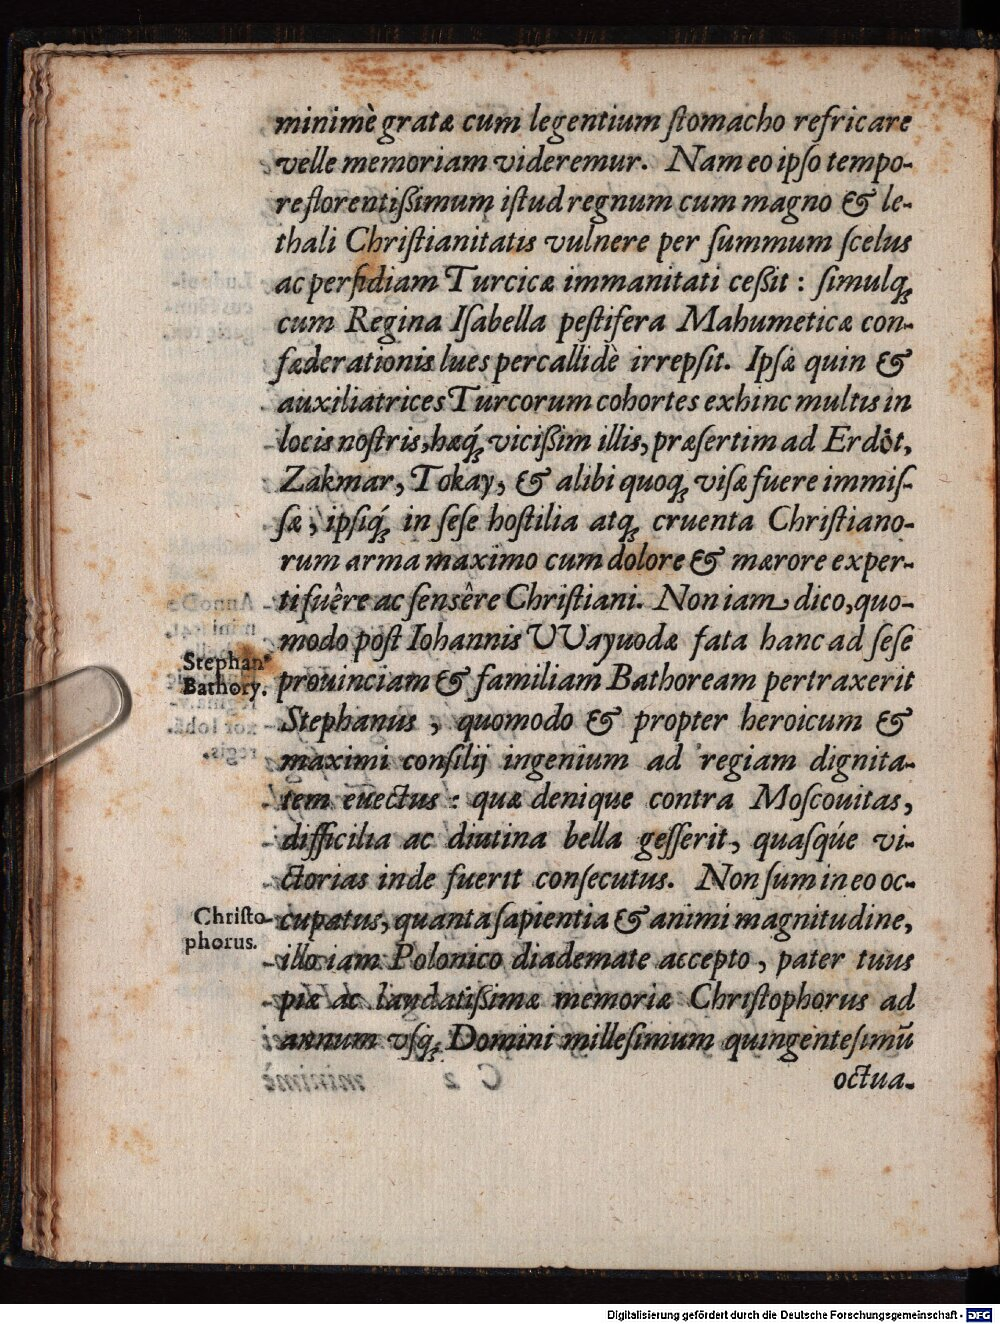 minimè gratæ cum legentium ſtomacho refricare
velle memoriam videremur. Nam eo ipſo tempo-
re florentißimum iſtud regnum cum magno & le-
thali Chriſtianitatis vulnere per ſummum ſcelus
ac perfidiam Turcicæ immanitati ceßit: ſimulq́;
cum Regina Iſabella peſtifera Mahumeticæ con-
fæderationis lues percallidè irrepſit. Ipſæ quin &
auxiliatrices Turcorum cohortes exhinc multis in
locis noſtris, hæq́; vicißim illis, præſertim ad Erdöt,
Zakmar, Tokay, & alibi quoq; viſæ fuere immiſ-
ſæ; ipſiq́; in ſeſe hoſtilia atq; cruenta Chriſtiano-
rum arma maximo cum dolore & mærore exper-
ti fuêre ac ſensêre Chriſtiani. Non iam dico, quo-
modo poſt Iohannis VVayuodæ fata hanc ad ſeſe
Stephan⁹
Bathory.
prouinciam & familiam Bathoream pertraxerit
Stephanus, quomodo & propter heroicum &
maximi conſilij ingenium ad regiam dignita-
tem euectus: quæ denique contra Moſcouitas,
difficilia ac diutina bella geſſerit, quaſq́ue vi-
ctorias inde fuerit conſecutus. Non ſum in eo oc-
Chriſto-
phorus.
cupatus, quanta ſapientia & animi magnitudine,
illo iam Polonico diademate accepto, pater tuus
piæ ac laudatißimæ memoriæ Chriſtophorus ad
annum vſq; Domini milleſimum quingenteſimũ
octua-
Digitalisierung gefördert durch die Deutsche Forschungsgemeinschaft - DFG